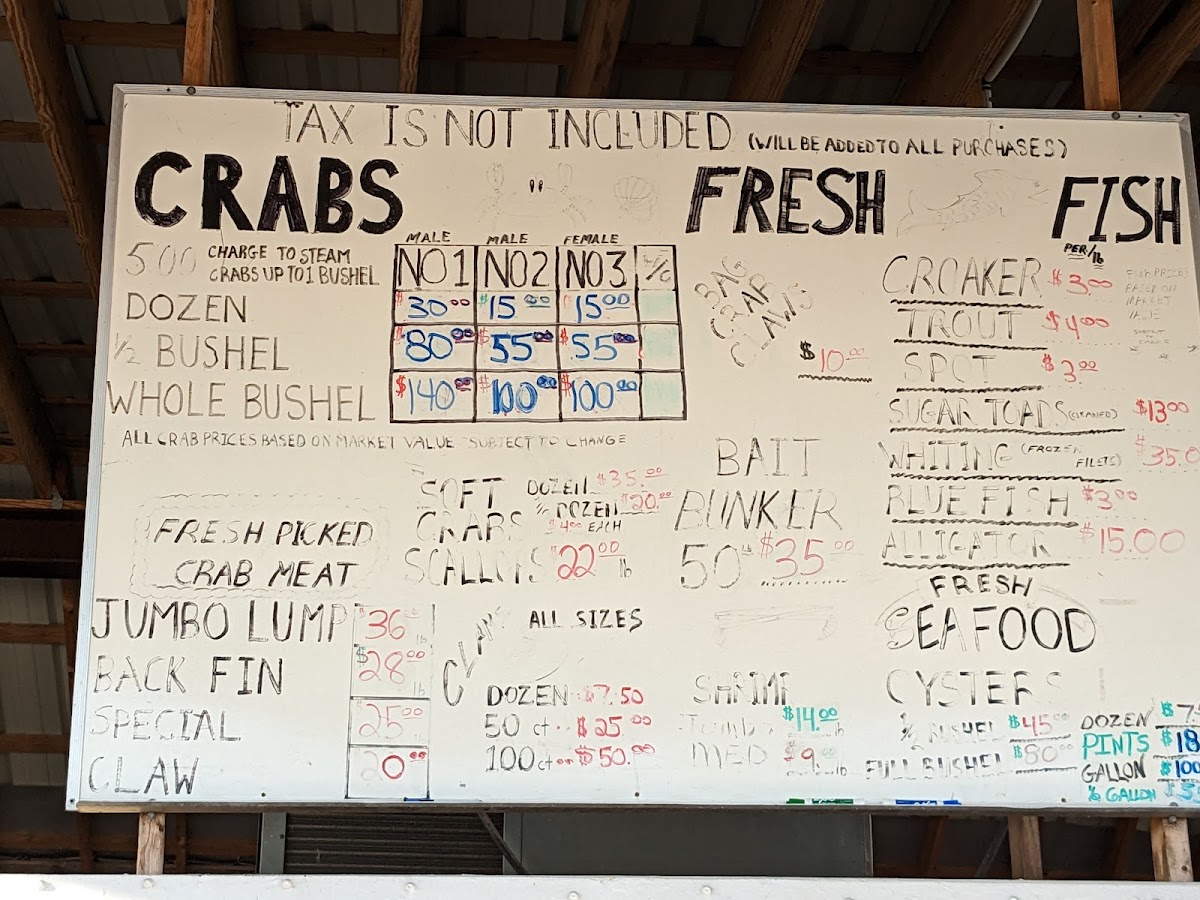 TAX IS NOT INCLUDED (WILL BE ADDED TO ALL PURCHASES)
CRABS
5.00 CHARGE TO STEAM
CRABS UP TO 1 BUSHEL
MALE MALE FEMALE
NO1 NO2 NO3
DOZEN $30.00 $15.00 $15.00
1/2 BUSHEL $80.00 $55.00 $55.00
WHOLE BUSHEL $140.00 $100.00 $100.00
ALL CRAB PRICES BASED ON MARKET VALUE SUBJECT TO CHANGE
FRESH PICKED
CRAB MEAT
JUMBO LUMP $36 lb
BACK FIN $28.00 lb
SPECIAL $25.00
CLAW 20.00
SOFT CRABS
DOZEN $35.00
1/2 DOZEN $20.00
$4.00 EACH
SCALLOPS $22.00 lb
CLAMS
ALL SIZES
DOZEN $7.50
50 ct $25.00
100 ct $50.00
FRESH FISH
BAG
CRAB
CLAWS
$10.00
PER/lb
CROAKER $3.00
TROUT $4.00
SPOT $3.00
SUGAR TOADS (CLEANED) $13.00
WHITING (FROZEN FILETS) $35.0
BLUE FISH $3.00
ALLIGATOR $15.00
FISH PRICES
BASED ON
MARKET
VALUE
BAIT
BUNKER
50 lb $35.00
FRESH
SEAFOOD
SHRIMP
Jumbo $14.00 lb
MED $9.00 lb
OYSTERS
1/2 BUSHEL $45.00
FULL BUSHEL $80.00
DOZEN $7.
PINTS $18
GALLON $100
1/2 GALLON